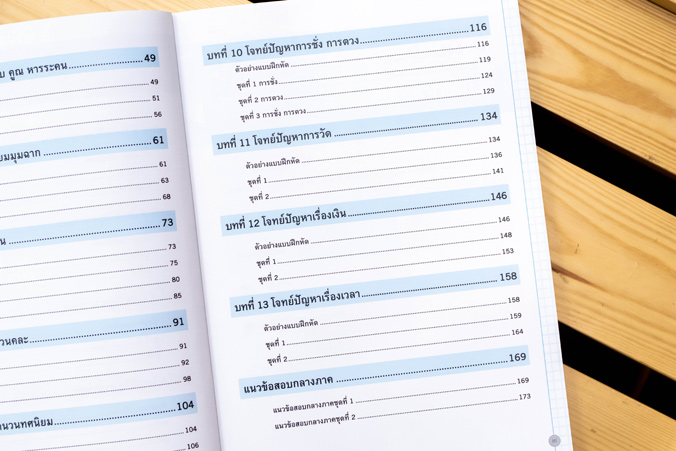 คูณ หารระคน 49
49
51
56
61
61
63
68
73
73
75
80
85
91
91
92
98
ทศนิยม 104
104
106
บทที่ 10 โจทย์ปัญหาการชั่ง การตวง 116
ตัวอย่างแบบฝึกหัด 116
ชุดที่ 1 การชั่ง 119
ชุดที่ 2 การตวง 124
ชุดที่ 3 การชั่ง การตวง 129
บทที่ 11 โจทย์ปัญหาการวัด 134
ตัวอย่างแบบฝึกหัด 134
ชุดที่ 1 136
ชุดที่ 2 141
บทที่ 12 โจทย์ปัญหาเรื่องเงิน 146
ตัวอย่างแบบฝึกหัด 146
ชุดที่ 1 148
ชุดที่ 2 153
บทที่ 13 โจทย์ปัญหาเรื่องเวลา 158
ตัวอย่างแบบฝึกหัด 158
ชุดที่ 1 159
ชุดที่ 2 164
แนวข้อสอบกลางภาค 169
แนวข้อสอบกลางภาคชุดที่ 1 169
แนวข้อสอบกลางภาคชุดที่ 2 173